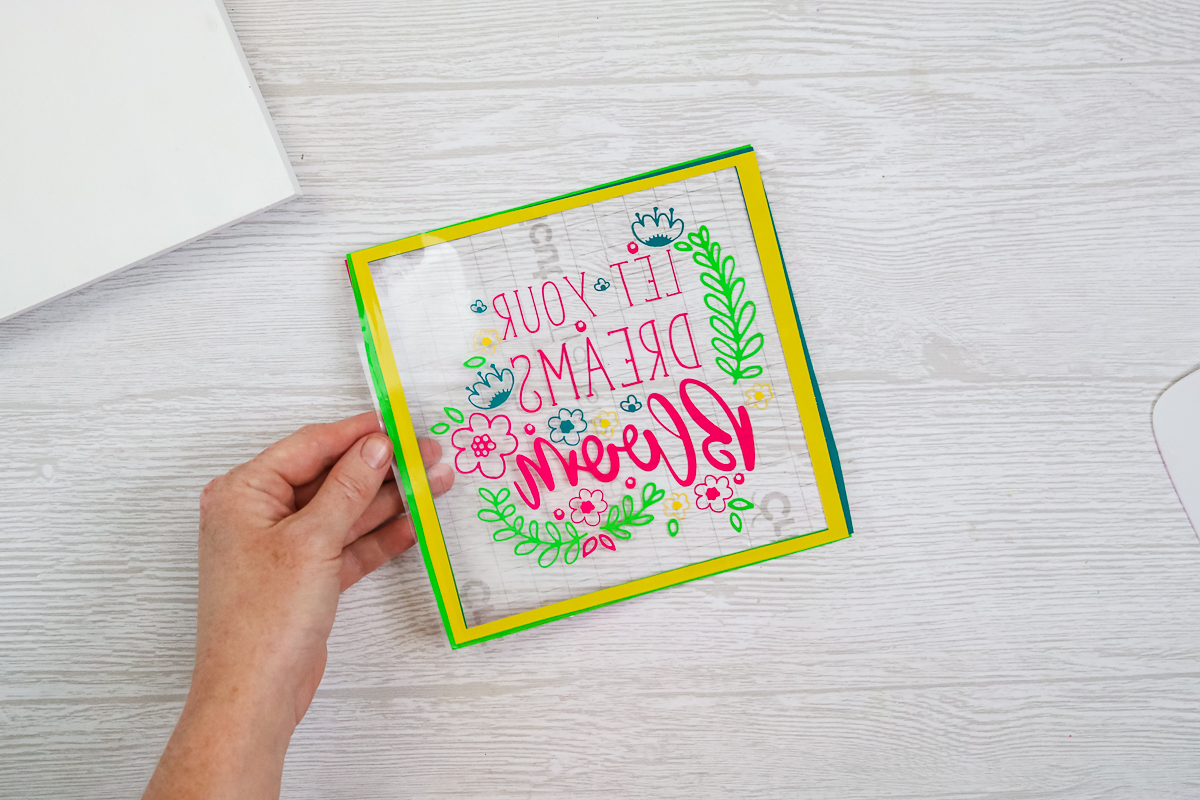 LET YOUR
DREAMS
Bloom